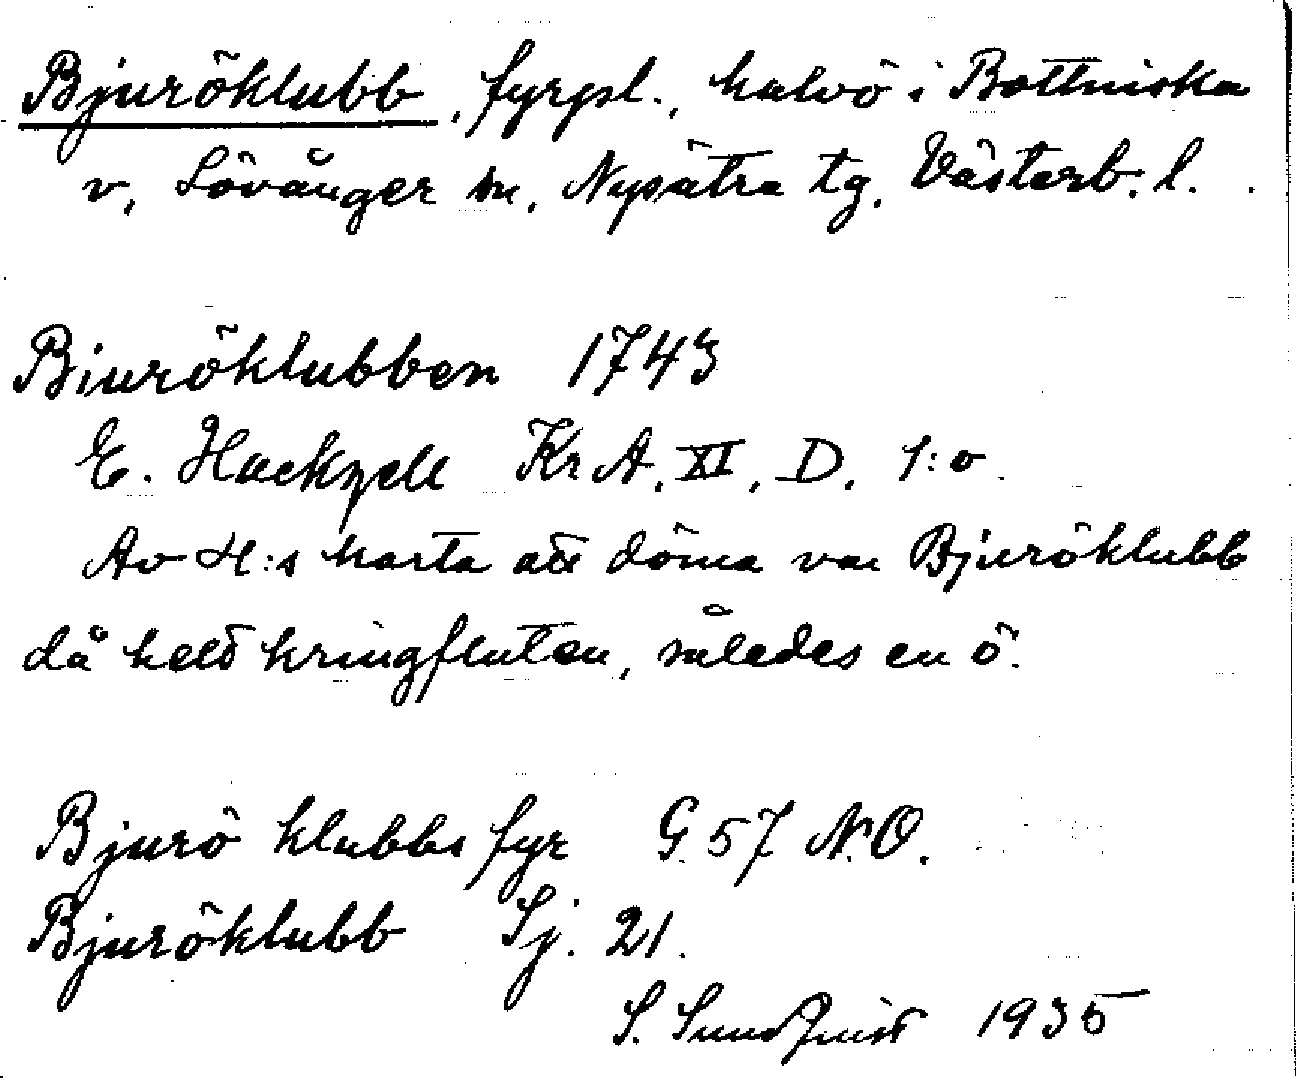 Bjuröklubb, fyrpl., halvö i Bottniska
v, Lövånger sn, Nysätra tg, Västerb. l.
Biuröklubben 1743
E. Hackzell KrA, XI, D, 1:o
Av H:s karta att döma var Bjuröklubb
då helt kringfluten, således en ö.
Bjurö klubbs fyr G. 57 N.O.
Bjuröklubb Sj. 21.
S. Sundquist 1935